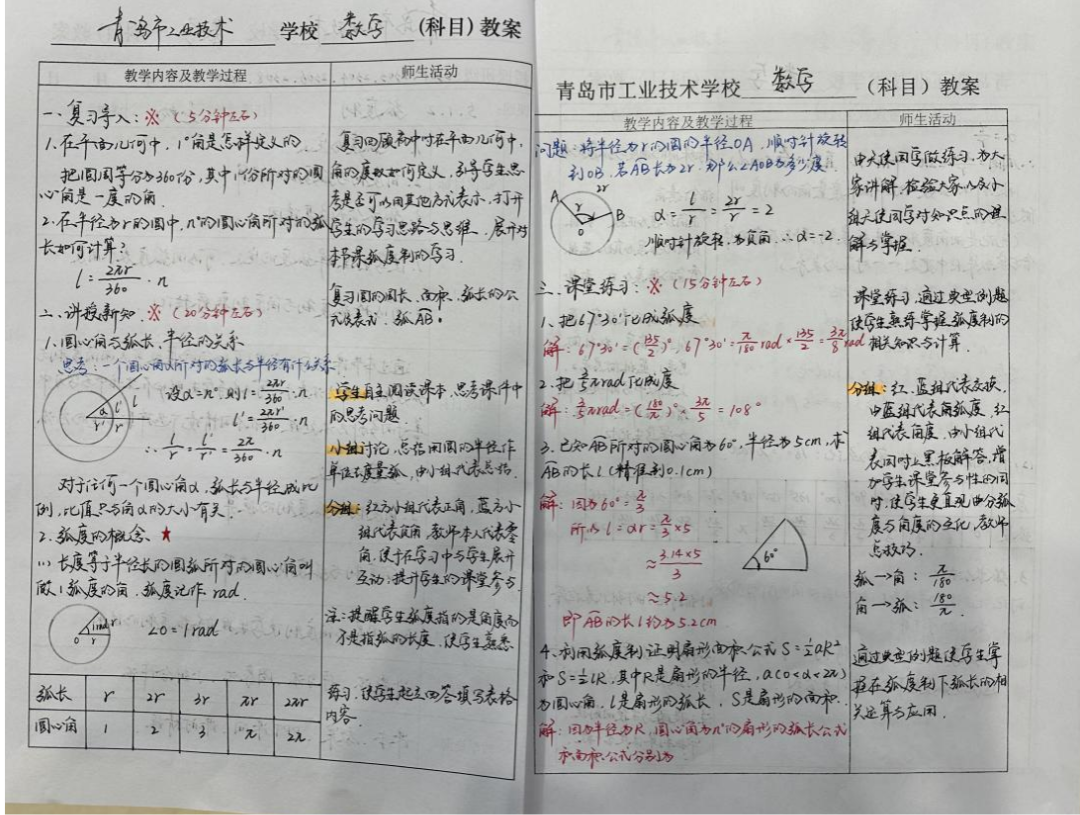 青岛市工业技术 学校 数学 (科目)教案
教学内容及教学过程
师生活动
一、复习导入：※（5分钟左右）
1.在平面几何中，1°角是怎样定义的
把圆周等分为360份，其中1份所对的圆
心角是一度的角.
2.在半径为r的圆中，n°的圆心角所对的弧
长如何计算？
l=2πr/360·n
二、讲授新知.※（20分钟左右）
1.圆心角与弧长、半径的关系
思考：一个圆心角α所对的弧长与半径有什么关系
设α=n°,则l=2πr/360·n
l'=2πr'/360·n
∴l/r=l'/r'=2π/360·n
对于任何一个圆心角α，弧长与半径成比
例，比值只与角α的大小有关.
2.弧度的概念 ★
(1)长度等于半径长的圆弧所对的圆心角叫
做1弧度的角.弧度记作rad.
1rad r
O r
∠O=1rad
弧长 r 2r 3r πr 2πr
圆心角 1 2 3 π 2π
复习回顾初中时在平面几何中,
角的度数如何定义，引导学生思
考是否可以用其他方式表示，打开
学生的学习思路与思维，展开对
本节课弧度制的学习.
复习圆的周长、面积、弧长的公
式及表示.弧AB.
学生自主阅读课本，思考课件中
的思考问题.
小组讨论，总结用圆的半径作
单位去度量弧，由小组代表总结.
分组：红方小组代表正角，蓝方小
组代表负角，教师本人代表零
角.便于在学习中与学生展开
互动，提升学生的课堂参与.
注：提醒学生弧度指的是角度而
不是指弧的长度，使学生熟悉
练习：使学生起立回答填写表格
内容.
青岛市工业技术学校 数学 （科目）教案
教学内容及教学过程
师生活动
问题：将半径为r的圆的半径OA，顺时针旋转
到OB，若AB长为2r，那么∠AOB为多少度.
A 2r
r B
O
α=l/r=2r/r=2
顺时针旋转，为负角.∴α=-2.
三、课堂练习：※（15分钟左右）
1、把67°30'化成弧度
解：67°30'=(135/2)°，67°30'=π/180 rad×135/2=3π/8 rad
2.把3/5πrad化成度
解：3/5πrad=(180/π)°×3π/5=108°
3.已知AB所对的圆心角为60°，半径为5cm，求
AB的长l（精准到0.1cm）
解：因为60°=π/3
所以l=αr=π/3×5
≈3.14×5/3
≈5.2
即AB的长l约为5.2cm
60°
4.利用弧度制证明扇形面积公式S=½αR²
和S=½lR，其中R是扇形的半径，α(0<α<2π)
为圆心角，l是扇形的弧长，S是扇形的面积.
解：因为半径为R，圆心角为n°的扇形的弧长公式
和面积公式分别为
由大使同学做练习，为大
家讲解，检验大家以及小
组大使同学对知识点的理
解与掌握.
课堂练习，通过典型例题
使学生熟练掌握弧度制的
相关知识与计算.
分组：红、蓝组代表交换.
由蓝组代表角弧度，红
组代表角度，由小组代
表同时上黑板解答，增
加学生课堂参与性的同
时，使学生更直观由分弧
度与角度的互化，教师
点技巧.
弧→角：π/180
角→弧：180/π.
通过典型例题使学生掌
握在弧度制下弧长的相
关运算与应用.